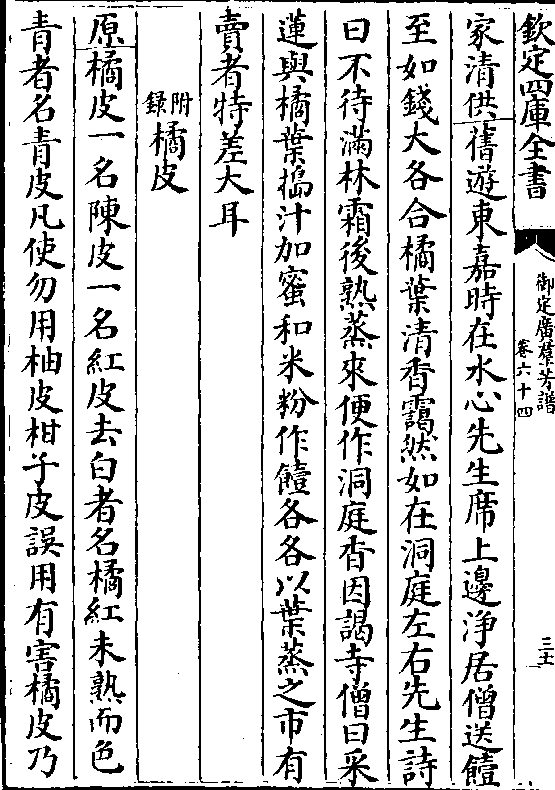 欽定四庫全書
御定廣羣芳譜
卷六十四
三十
家清供舊遊東嘉時在水心先生席上邊淨居僧送饐
至如錢大各合橘葉清香靄然如在洞庭左右先生詩
曰不待滿林霜後熟蒸來便作洞庭香因謁寺僧曰采
蓮與橘葉搗汁加蜜和米粉作饐各各以葉蒸之市有
賣者特差大耳
附錄橘皮
原橘皮一名陳皮一名紅皮去白者名橘紅未熟而色
青者名青皮凡使勿用柚皮柑子皮誤用有害橘皮乃